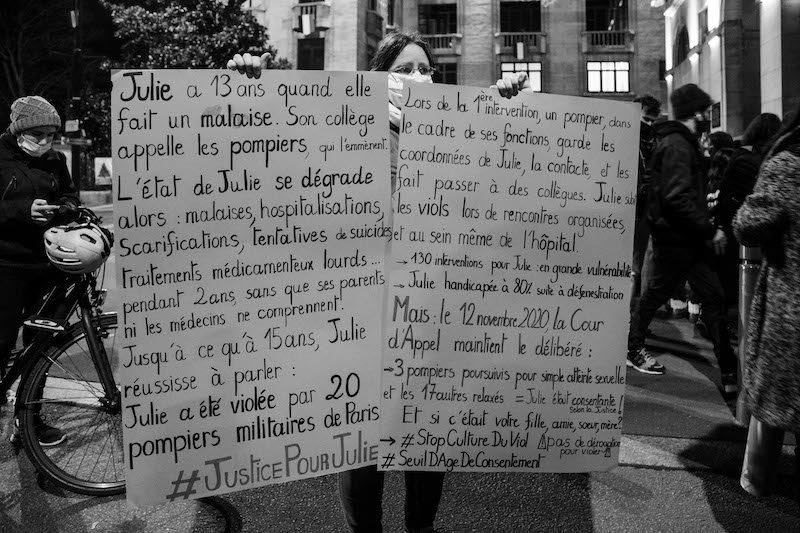 Julie a 13 ans quand elle
fait un malaise. Son collège
appelle les pompiers, qui l'emmènent.
L'état de Julie se dégrade
alors : malaises, hospitalisations,
scarifications, tentatives de suicides,
traitements médicamenteux lourds...
pendant 2 ans, sans que ses parents
ni les médecins ne comprennent.
Jusqu'à ce qu'à 15 ans, Julie
réussisse à parler :
Julie a été violée par 20
pompiers militaires de Paris
#JusticePourJulie
Lors de la 1ère intervention, un pompier, dans
le cadre de ses fonctions, garde les
coordonnées de Julie, la contacte, et les
fait passer à des collègues. Julie subit
les viols lors de rencontres organisées,
et au sein même de l'hôpital.
→ 130 interventions pour Julie : en grande vulnérabilité
→ Julie handicapée à 80% suite à défenestration
Mais : le 12 novembre 2020, la Cour
d'Appel maintient le délibéré :
→ 3 pompiers poursuivis pour simple atteinte sexuelle
et les 17 autres relaxés = Julie était consentante !
selon la justice
Et si c'était votre fille, amie, soeur, mère ?
→ #StopCultureDuViol ⚠pas de dérogation
pour violer ⚠
#SeuilDAgeDeConsentement